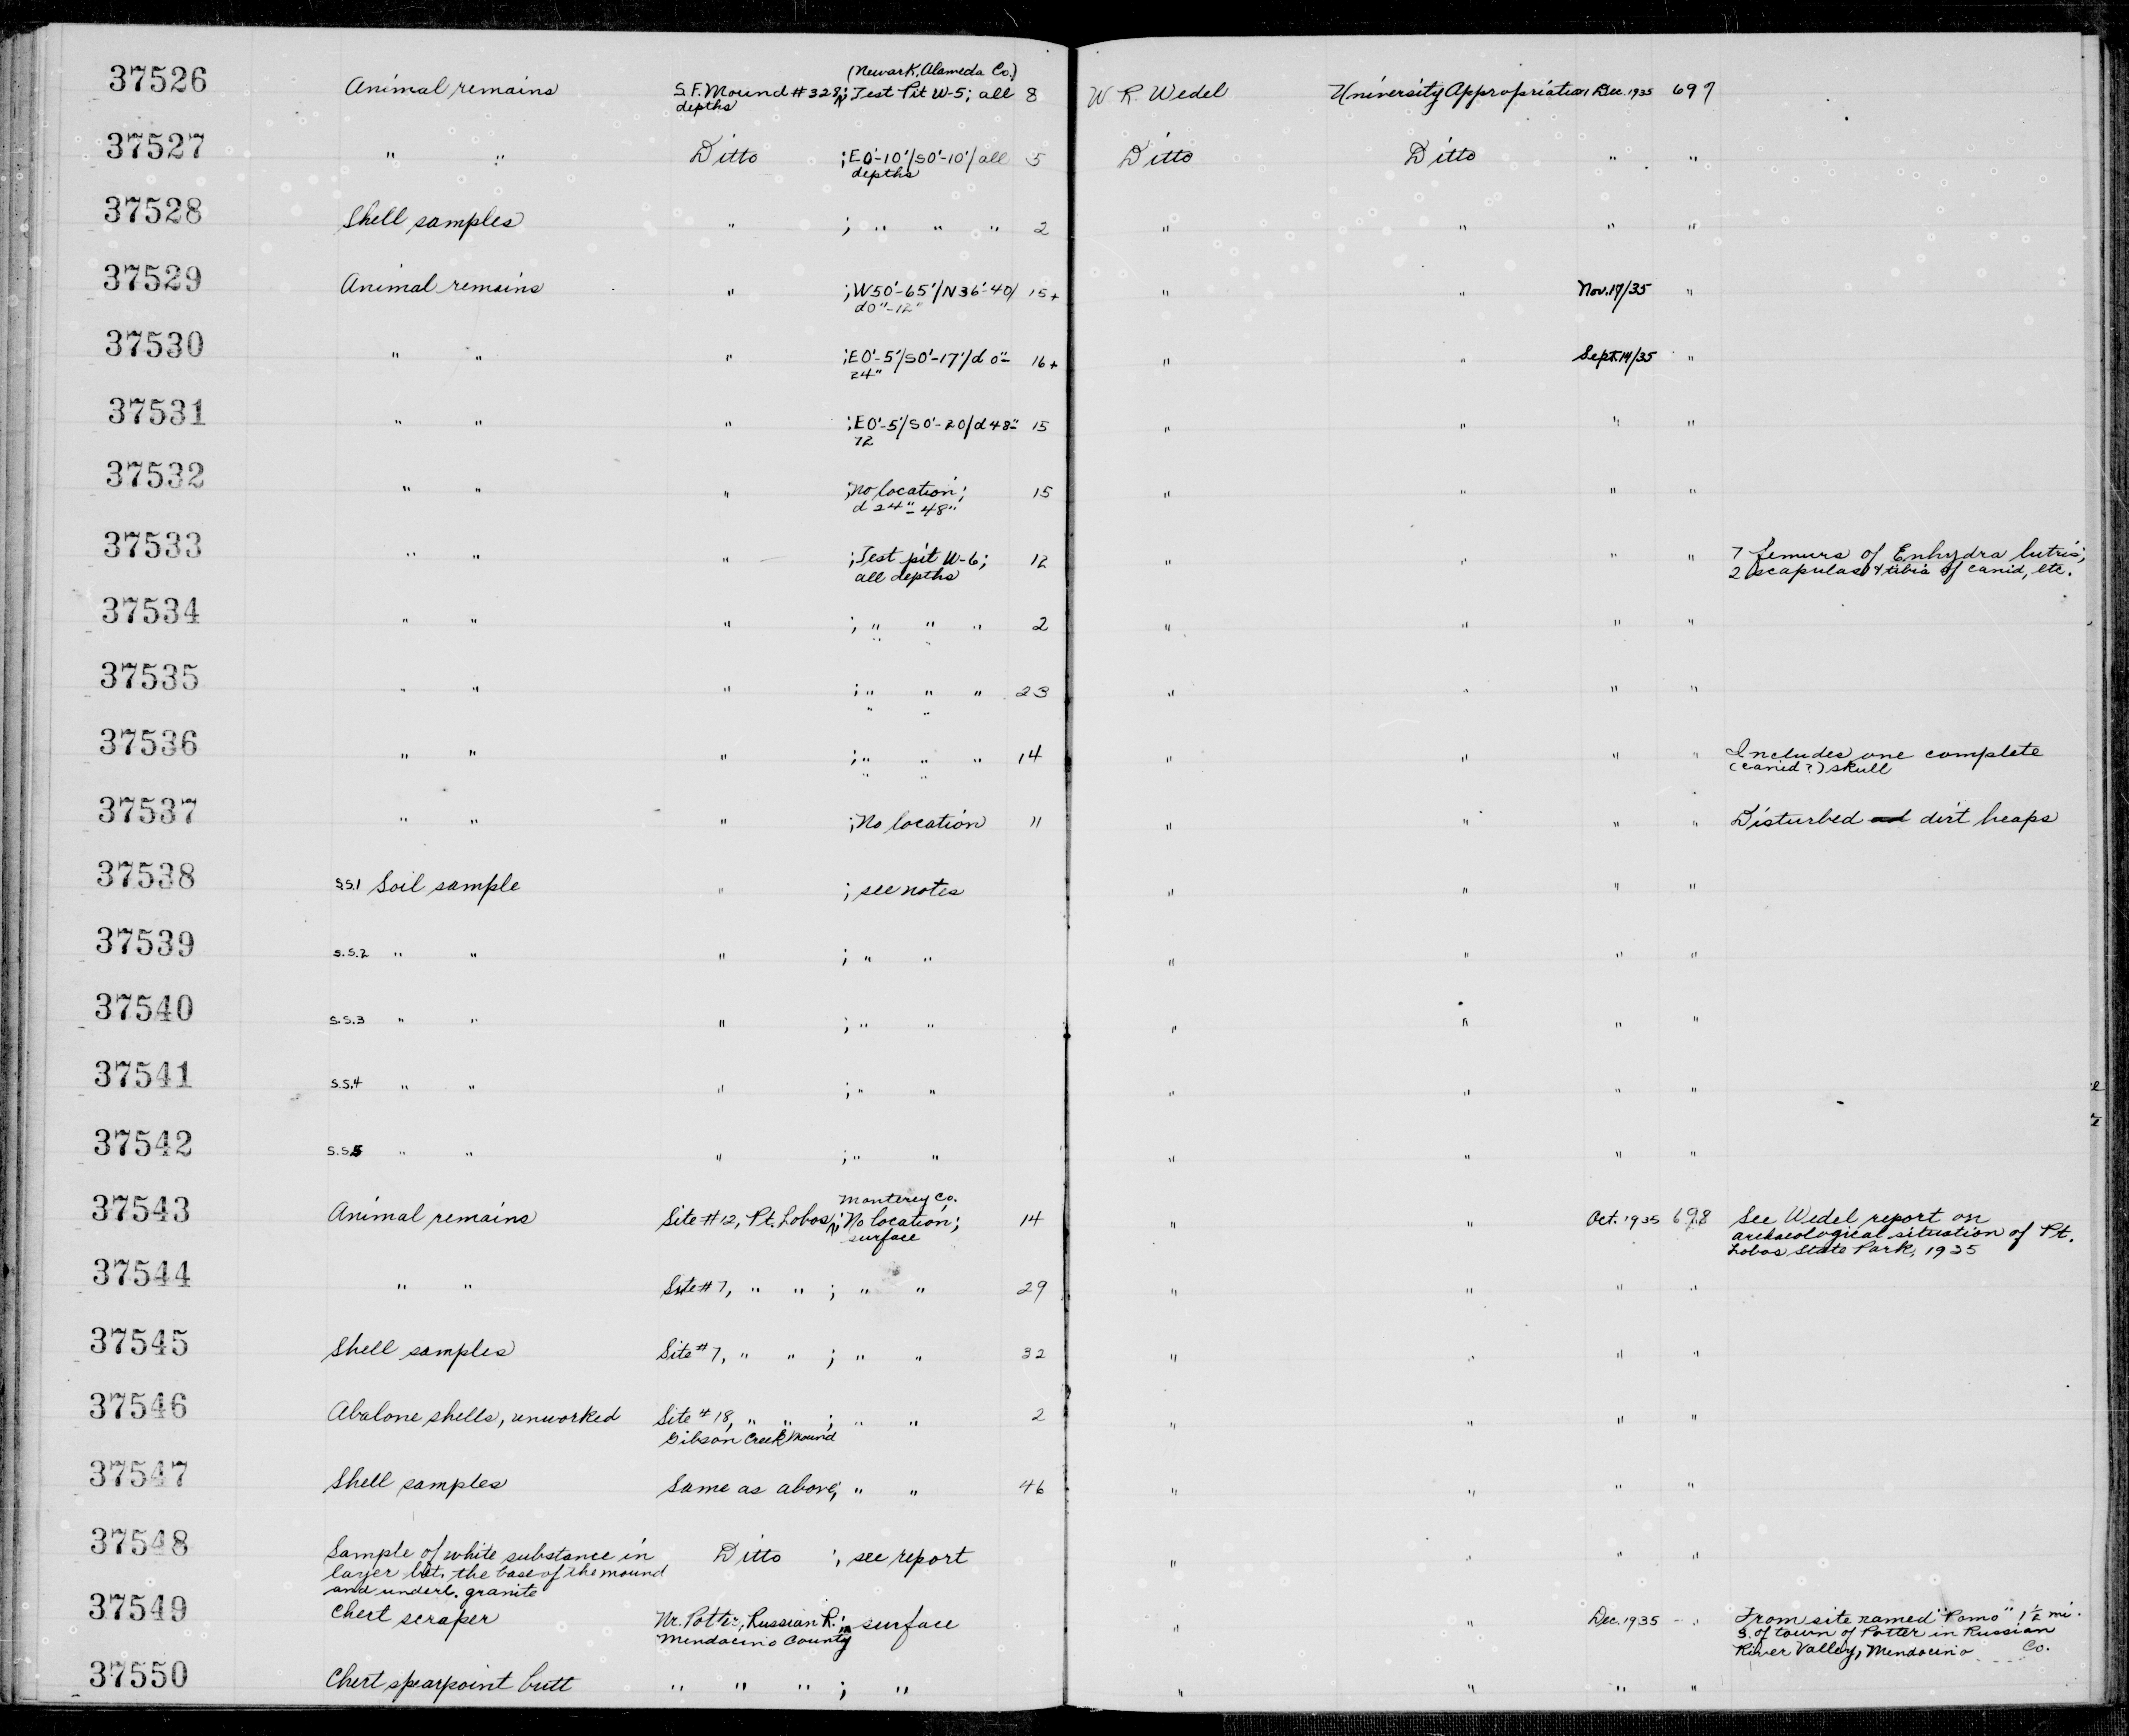 37526 Animal remains S.F. Mound #328; (Newark, Alameda Co.) Test Pit W-5; all depths 8 W. R. Wedel University Appropriation Dec. 1935 697
37527 " " Ditto ; E0'-10'/S0'-10'/all depths 5 Ditto Ditto " "
37528 Shell samples " ; " " " 2 " " " "
37529 Animal remains " ; W50'-65'/N36'-40/ d0"-12" 15+ " " Nov.17/35 "
37530 " " " ; E0'-5'/S0'-17'/d 0"- 24" 16+ " " Sept.14/35 "
37531 " " " ; E0'-5'/S0'-20/d 48"- 72 15 " " " "
37532 " " " ; No location; d 24"-48" 15 " " " "
37533 " " " ; Test pit W-6; all depths 12 " " " " 7 femurs of Enhydra lutris; 2 scapulas & tibia of canid, etc.
37534 " " " ; " " " " " 2 " " " "
37535 " " " ; " " " " " 23 " " " "
37536 " " " ; " " " " " 14 " " " " Includes one complete (canid?) skull
37537 " " " ; No location 11 " " " " Disturbed dirt heaps
37538 S.S.1 Soil sample " ; see notes " " " "
37539 S.S.2 " " " ; " " " " " "
37540 S.S.3 " " " ; " " " " " "
37541 S.S.4 " " " ; " " " " " "
37542 S.S.5 " " " ; " " " " " "
37543 Animal remains Site #12, Pt. Lobos, Monterey Co.; No location; surface 14 " " Oct. 1935 698 See Wedel report on archaeological situation of Pt. Lobos State Park, 1935
37544 " " Site #7, " " ; " " 29 " " " "
37545 Shell samples Site #7, " " ; " " 32 " " " "
37546 Abalone shells, unworked Site #18, " " ; " " Gibson Creek Mound 2 " " " "
37547 Shell samples Same as above; " " 46 " " " "
37548 Sample of white substance in layer bet. the base of the mound and underl. granite Ditto ; see report " " " "
37549 Chert scraper Nr. Potter, Russian R.; Mendocino County surface " " Dec. 1935 " From site named "Pomo" 1½ mi. S. of town of Potter in Russian River Valley, Mendocino Co.
37550 Chert spearpoint butt " " " ; " " " " "